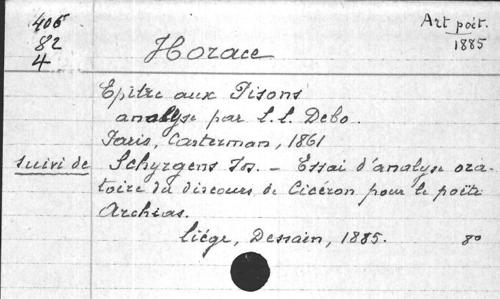 406
82
4
Art poét.
1885
Horace
Epitre aux Pisons
analyse par L. L. Debo.
Paris, Casterman, 1861
suivi de Schyrgens Js. - Essai d'analyse ora-
toire du discours de Cicéron pour le poète
Archias.
Liége, Dessain, 1885. 8º